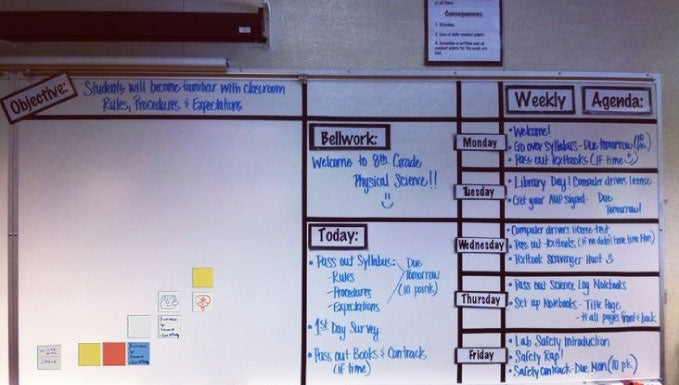 of all times.
Consequences:
1. Warning
Objective:
Students will become familiar with classroom
Rules, Procedures & Expectations.
Bellwork:
Welcome to 8th Grade
Physical Science!!
Today:
• Pass out Syllabus:
- Rules
- Procedures
- Expectations
Due
Tomorrow
(10 points)
• 1st Day Survey
• Pass out Books & Contracts
(if time)
Weekly Agenda:
Monday
• Welcome!
• Go over Syllabus - Due tomorrow (10
• Pass out textbooks (if time)
Tuesday
• Library Day! Computer drivers license
• Get your AUP signed - Due
Tomorrow!
Wednesday
• Computer drivers license test
• Pass out textbooks (if we didn't have time Mon)
• Textbook Scavenger Hunt
Thursday
• Pass out Science Log Notebooks
• Set up Notebooks - Title Page
- # all pages front & back
Friday
• Lab Safety Introduction
• Safety Rap!
• Safety Contract - Due Mon (10 pts.)